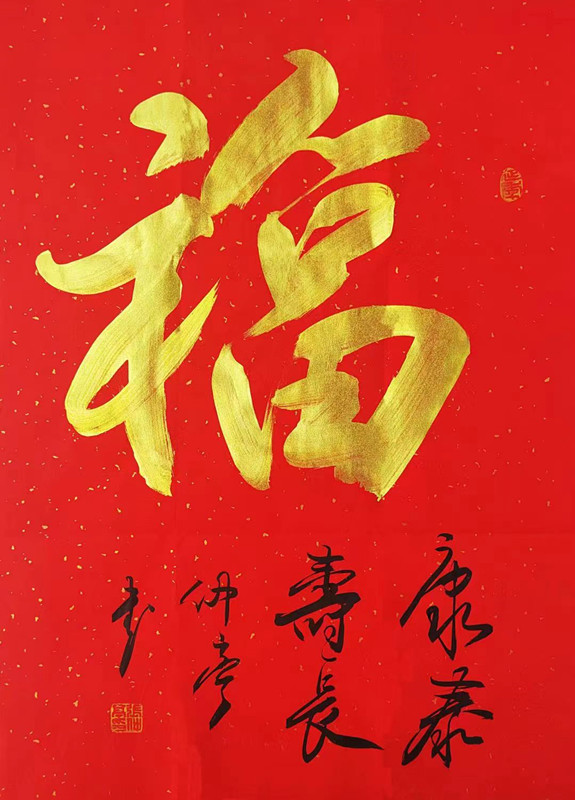 福
康泰
壽長
仲亭
書